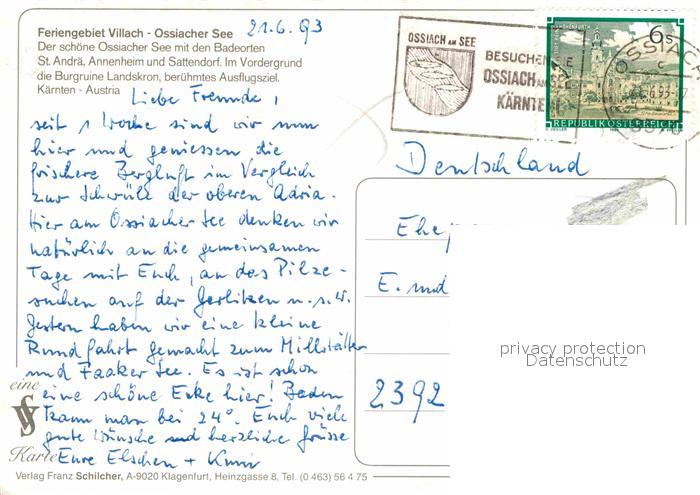 Feriengebiet Villach - Ossiacher See
Der schöne Ossiacher See mit den Badeorten
St. Andrä, Annenheim und Sattendorf. Im Vordergrund
die Burgruine Landskron, berühmtes Ausflugsziel.
Kärnten - Austria
21.6.93
Liebe Freunde,
seit 1 Woche sind wir nun
hier und geniessen die
frischere Bergluft im Vergleich
zur Schwüle der oberen Adria.
Hier am Ossiacher See denken wir
natürlich an die gemeinsamen
Tage mit Euch, an das Pilze-
suchen auf der Gerlitzen u.s.w.
Gestern haben wir eine kleine
Rundfahrt gemacht zum Millstätter
und Faaker See. Es ist schon
eine schöne Ecke hier! Baden
kann man bei 24°. Euch viele
gute Wünsche und herzliche Grüsse
Eure Elschen +
eine
Karte
Verlag Franz Schilcher, A-9020 Klagenfurt, Heinzgasse 8, Tel. (0 463) 56 4 75
OSSIACH AM SEE
BESUCHEN SIE
OSSIACH AM SEE
KÄRNTEN
6 S
REPUBLIK ÖSTERREICH
OSSIACH
Deutschland
E. und
2392
privacy protection
Datenschutz